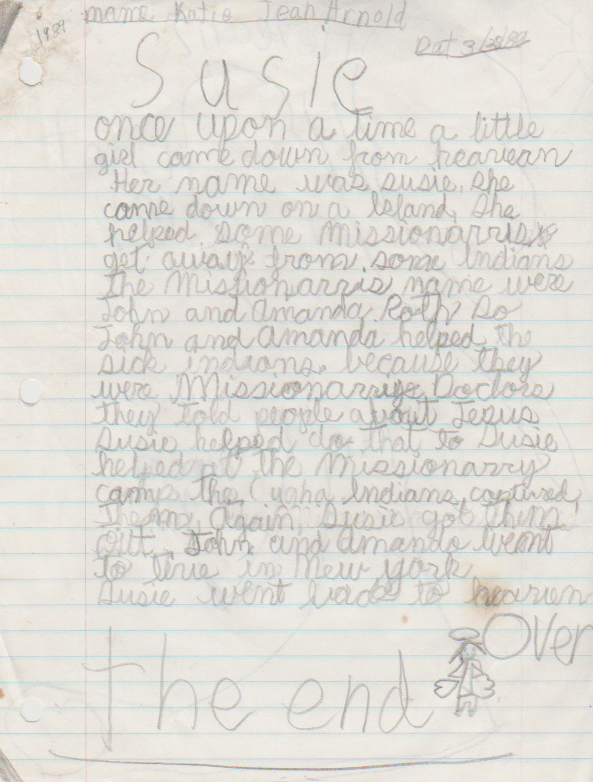 1989
name Katie Jean Arnold
Dat 3/28/89
Susie
once upon a time a little
girl came down from heavean
Her name was susie. she
came down on a Island, She
helped some missionarris
get away from some Indians
the Missionarris name were
John and Amanda Roth So
John and Amanda helped the
sick indians because they
were Missionarrys Doctors
they told people about Jesus
Susie helped do that to Susie
helped at the Missionarry
camp. the Indians captured
them Again, Susie got them
out, John and Amanda went
to live in New york
Susie went back to heaven
Over
the end